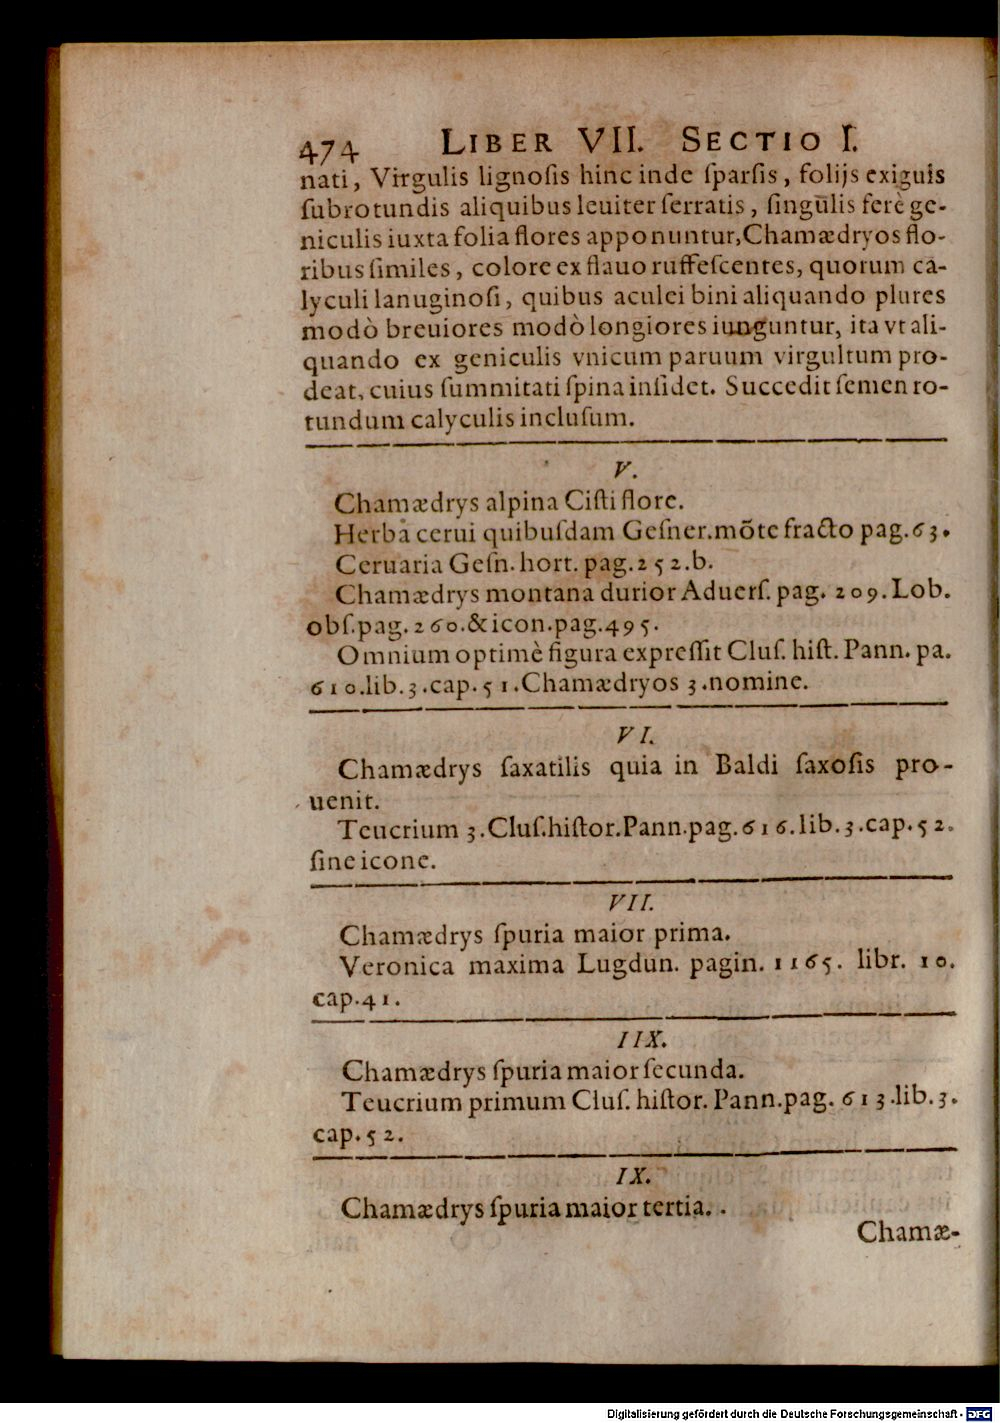 474 LIBER VII. SECTIO I.
nati, Virgulis lignoſis hinc inde ſparſis, folijs exiguis
ſubrotundis aliquibus leuiter ſerratis, ſingulis ferè ge-
niculis iuxta folia flores apponuntur, Chamædryos flo-
ribus ſimiles, colore ex flauo ruffeſcentes, quorum ca-
lyculi lanuginoſi, quibus aculei bini aliquando plures
modò breuiores modò longiores iunguntur, ita vt ali-
quando ex geniculis vnicum paruum virgultum pro-
deat, cuius ſummitati ſpina inſidet. Succedit ſemen ro-
tundum calyculis incluſum.
V.
Chamædrys alpina Ciſti flore.
Herba cerui quibuſdam Geſner. mõte fracto pag. 63.
Ceruaria Geſn. hort. pag. 252. b.
Chamædrys montana durior Aduerſ. pag. 209. Lob.
obſ. pag. 260. & icon. pag. 495.
Omnium optimè figura expreſſit Cluſ. hiſt. Pann. pa.
610. lib. 3. cap. 51. Chamædryos 3. nomine.
VI.
Chamædrys ſaxatilis quia in Baldi ſaxoſis pro-
uenit.
Teucrium 3. Cluſ. hiſtor. Pann. pag. 616. lib. 3. cap. 52.
ſine icone.
VII.
Chamædrys ſpuria maior prima.
Veronica maxima Lugdun. pagin. 1165. libr. 10.
cap. 41.
IIX.
Chamædrys ſpuria maior ſecunda.
Teucrium primum Cluſ. hiſtor. Pann. pag. 613. lib. 3.
cap. 52.
IX.
Chamædrys ſpuria maior tertia.
Chamæ-
Digitalisierung gefördert durch die Deutsche Forschungsgemeinschaft - DFG